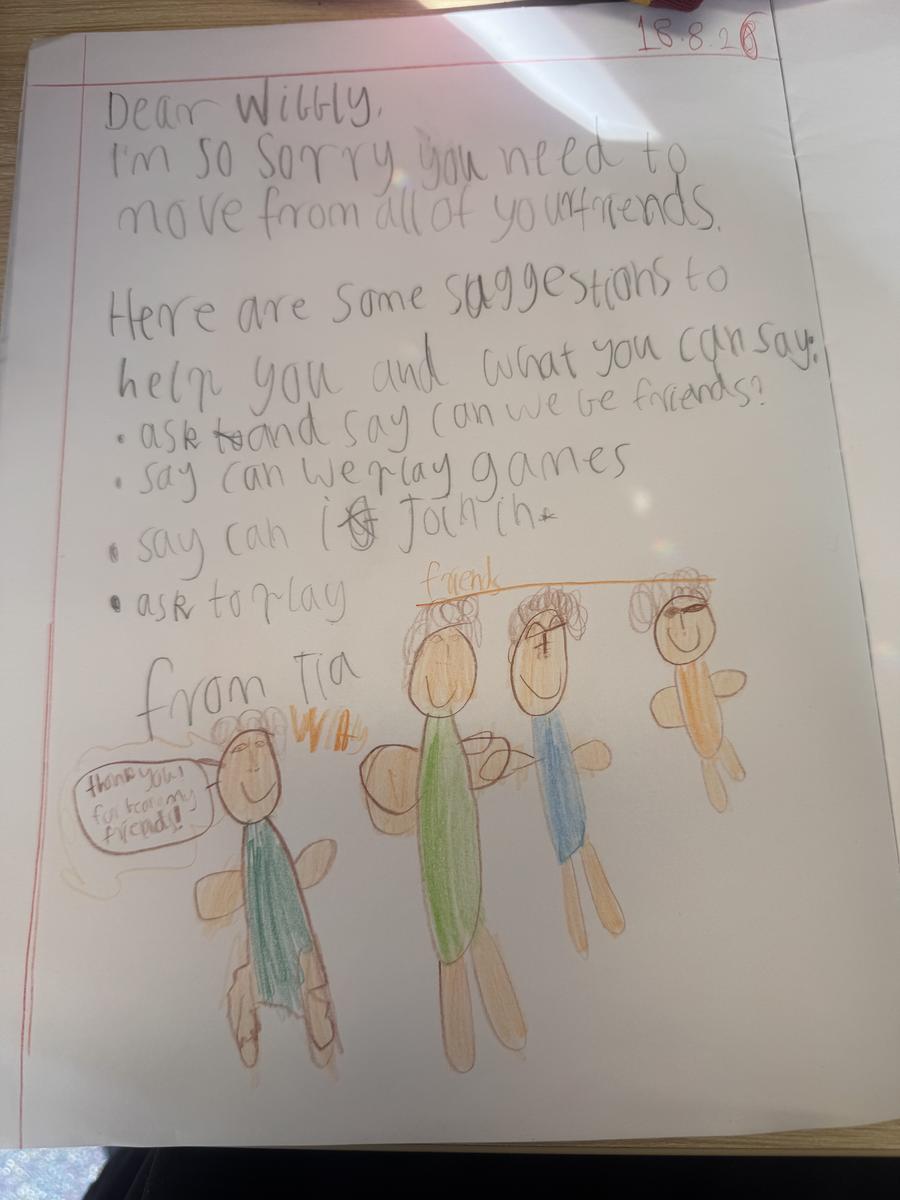 18.8.26
Dear Wibbly,
I'm so sorry you need to
move from all of your friends.
Here are some suggestions to
help you and what you can say:
• ask and say can we be friends?
• say can we play games
• say can i join in.
• ask to play
from Tia
friends
thank you
for being my
friends!